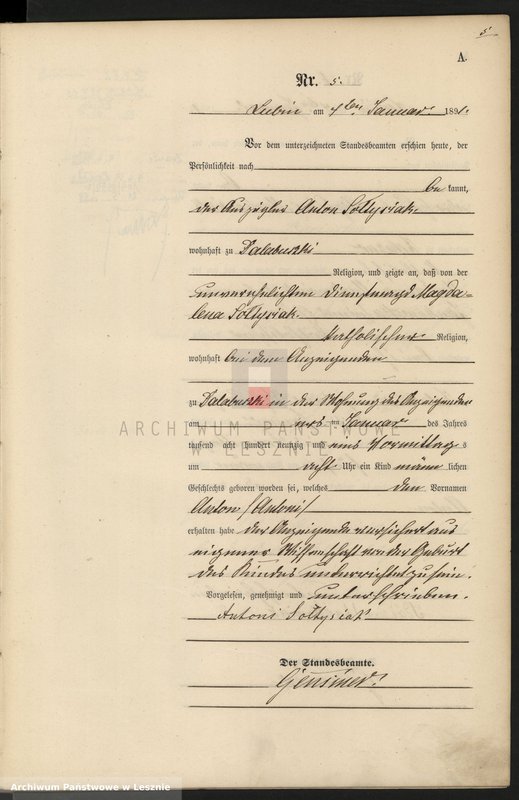 5
A.
Nr. 5.
Lubin am 7ten Januar 1891.
Vor dem unterzeichneten Standesbeamten erschien heute, der
Persönlichkeit nach
be kannt,
der Auszügler Anton Soltysiak
wohnhaft zu Zalabuszki
Religion, und zeigte an, daß von der
unverehelichten Dienstmagd Magda-
lena Soltysiak
katholischer Religion,
wohnhaft bei dem Anzeigenden
zu Zalabuszki in der Wohnung des Anzeigenden
am ten Januar des Jahres
tausend acht hundert neunzig und eins Vormittag s
um acht Uhr ein Kind männ lichen
Geschlechts geboren worden sei, welches den Vornamen
Anton /Antoni/
erhalten habe der Anzeigende versichert aus
eigener Wissenschaft von der Geburt
des Kindes unterrichtet zu sein.
Vorgelesen, genehmigt und unterschrieben.
Antoni Sołtysiak
Der Standesbeamte.
ARCHIWUM PAŃSTWOWE
W LESZNIE
Archiwum Państwowe w Lesznie